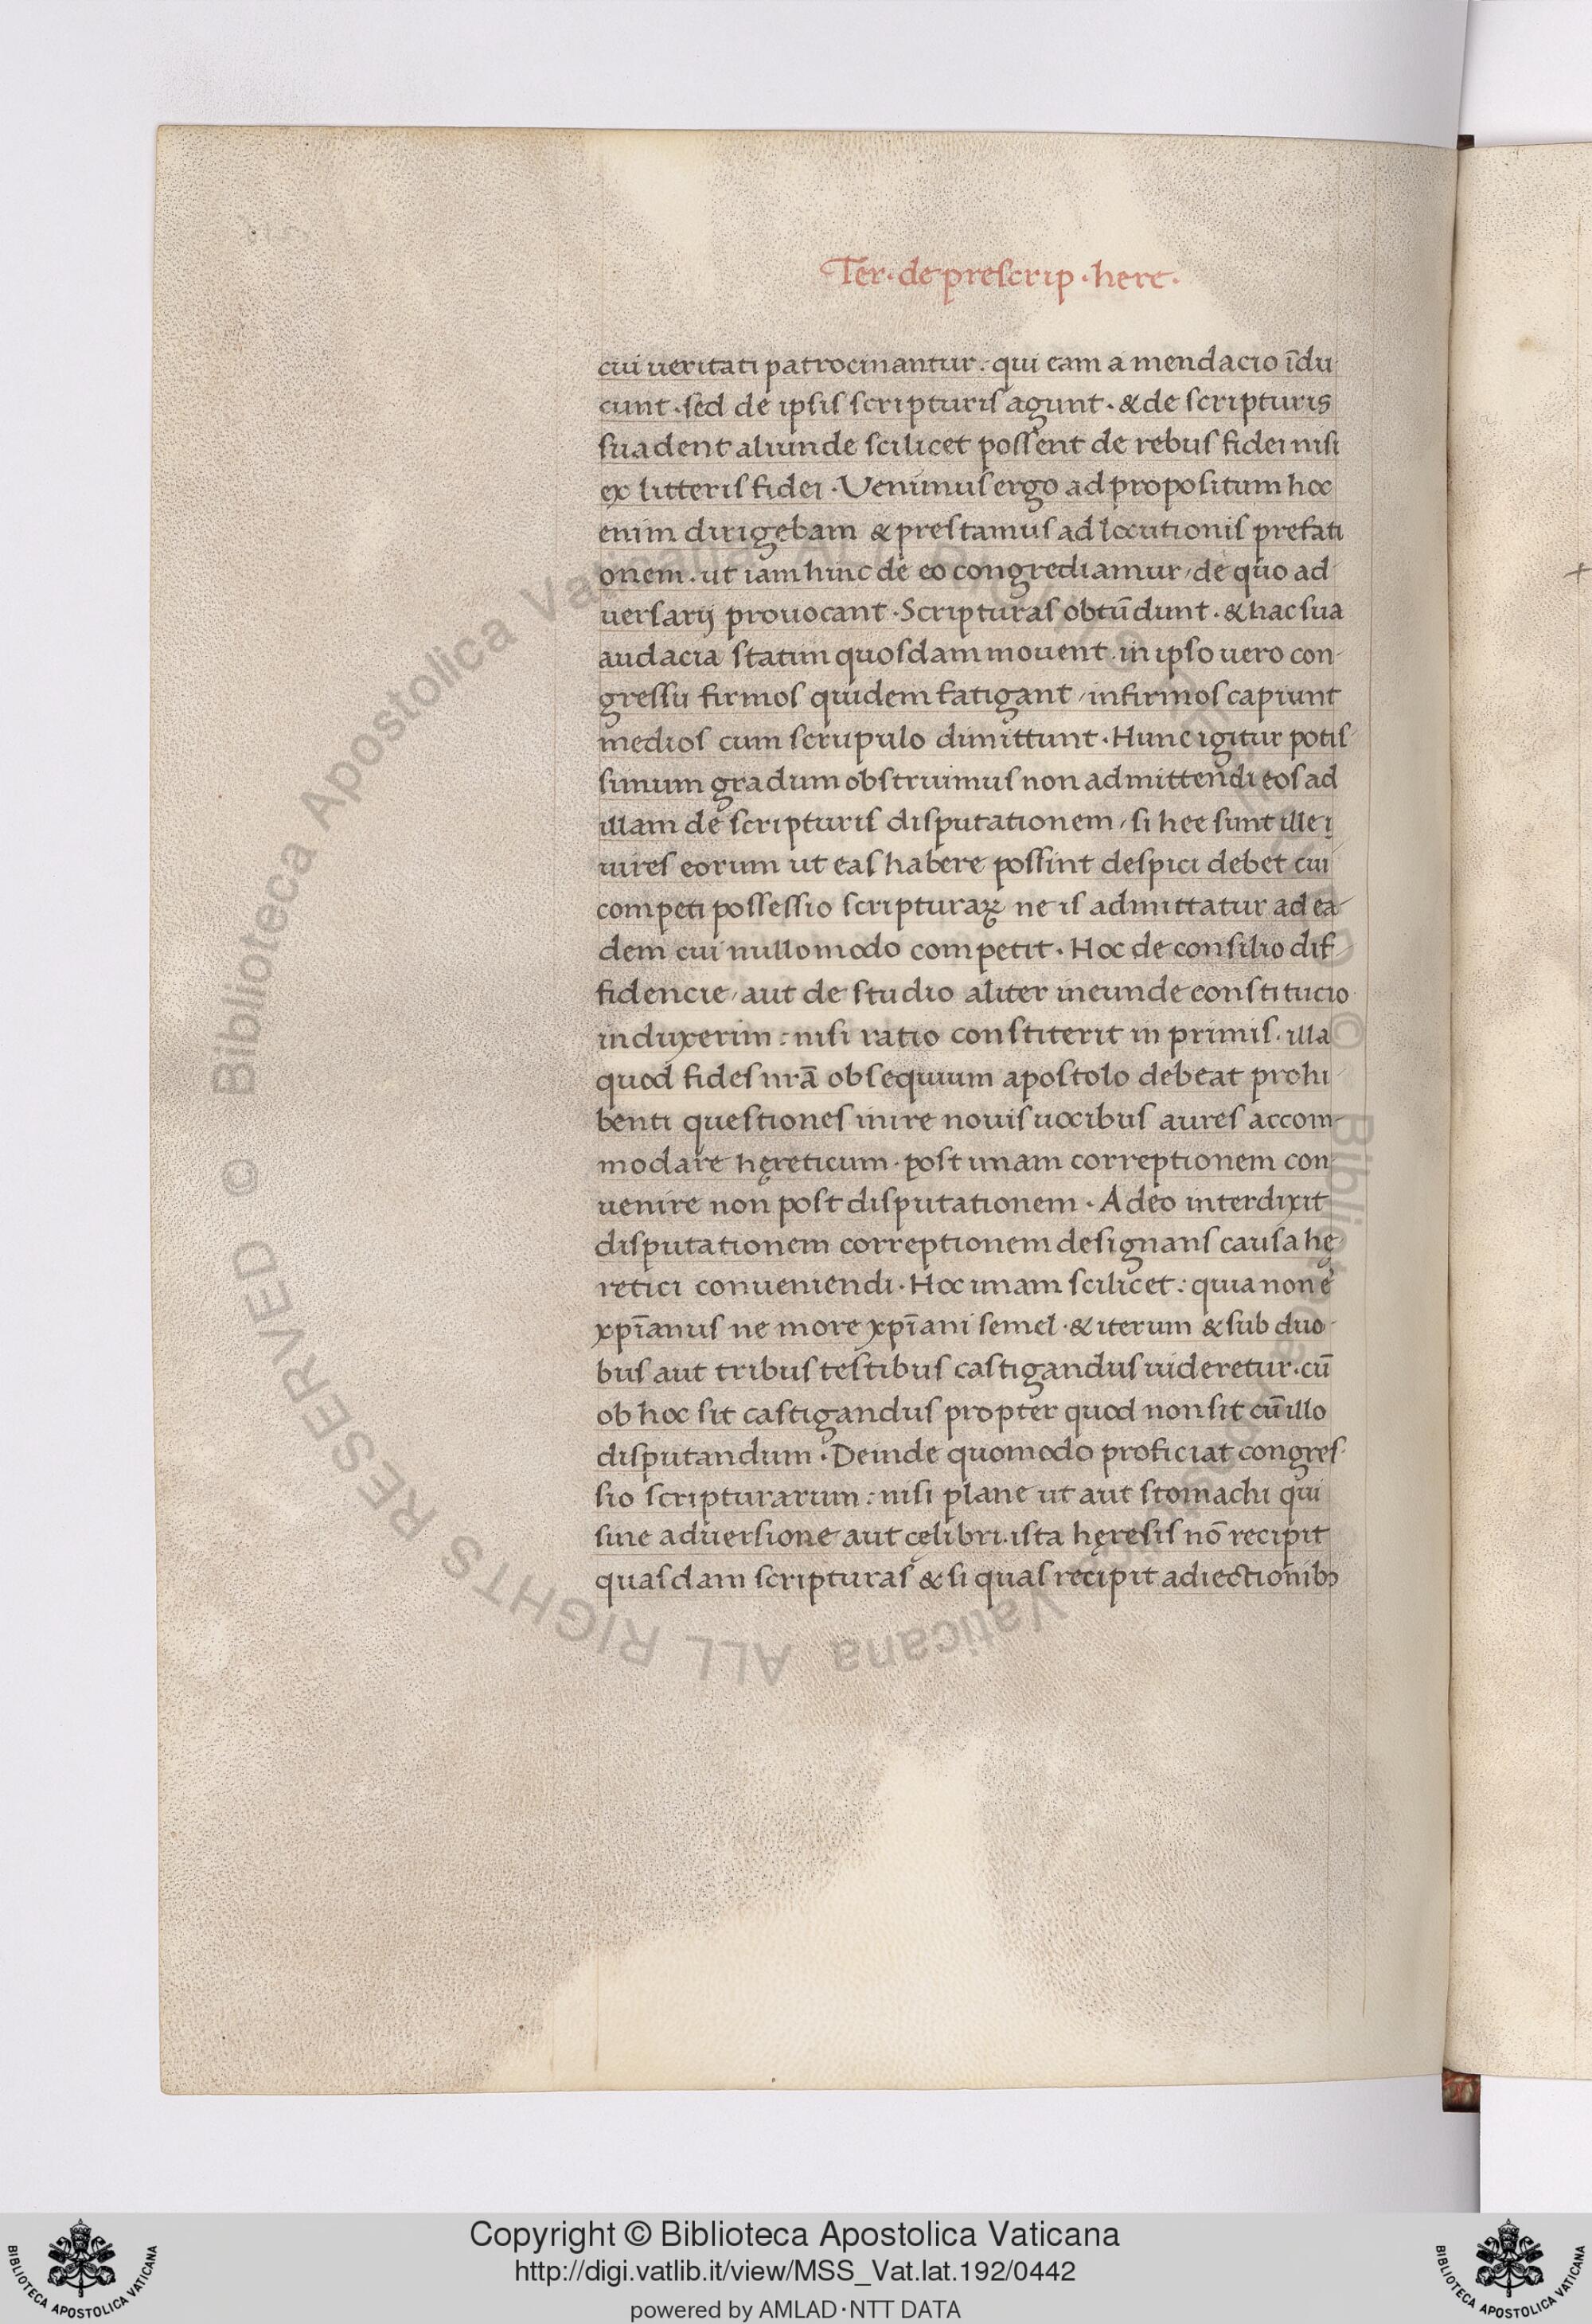 Ter · de prescrip · here ·
cui ueritati patrocinantur : qui eam a mendacio īdu
cunt · sed de ipsis scripturis agunt · & de scripturis
suadent aliunde scilicet possent de rebus fidei nisi
ex litteris fidei · Venimus ergo ad propositum hoc
enim dirigebam & prestamus ad locutionis prefati
onem · ut iam hinc de eo congrediamur / de quo ad
uersarij prouocant · Scripturas obtūdunt · & hac sua
audacia statim quosdam mouent · in ipso uero con-
gressu firmos quidem fatigant / infirmos capiunt
medios cum scrupulo dimittunt · Hunc igitur potis-
simum gradum obstruimus non admittendi eos ad
illam de scripturis disputationem / si hee sunt ille i
uires eorum ut eas habere possint despici debet cui
competi possessio scripturaꝝ ne is admittatur ad ea-
dem cui nullomodo competit · Hoc de consilio dif-
fidencie / aut de studio aliter ineunde constitucio
induxerim : nisi ratio constiterit in primis · illa
quod fides nr̄a obsequium apostolo debeat prohi-
benti questiones inire nouis uocibus aures accom-
modare hęreticum · post unam correptionem con-
uenire non post disputationem · Adeo interdixit
disputationem correptionem designans causa hę
retici conueniendi · Hoc unam scilicet : quia non ē
xpīanus ne more xpīani semel · & iterum & sub duo-
bus aut tribus testibus castigandus uideretur · cū
ob hoc sit castigandus propter quod non sit cū illo
disputandum · Deinde quomodo proficiat congres-
sio scripturarum : nisi plane ut aut stomachi qui
sine aduersione aut cęlibri · ista hęresis nō recipit
quasdam scripturas & si quas recipit adiectionibꝫ
© Biblioteca Apostolica Vaticana ALL RIGHTS RESERVED
© Biblioteca Apostolica Vaticana ALL RIGHTS RESERVED
Copyright © Biblioteca Apostolica Vaticana
http://digi.vatlib.it/view/MSS_Vat.lat.192/0442
powered by AMLAD·NTT DATA
BIBLIOTECA APOSTOLICA VATICANA
BIBLIOTECA APOSTOLICA VATICANA